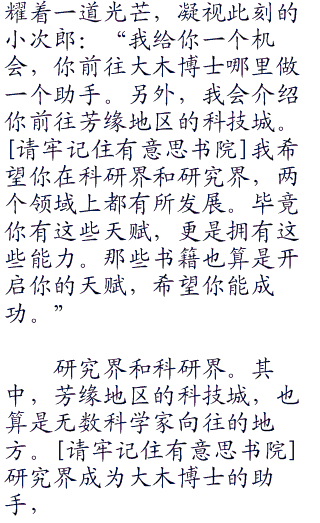 耀着一道光芒，凝视此刻的
小次郎：“我给你一个机
会，你前往大木博士哪里做
一个助手。另外，我会介绍
你前往芳缘地区的科技城。
[请牢记住有意思书院]我希
望你在科研界和研究界，两
个领域上都有所发展。毕竟
你有这些天赋，更是拥有这
些能力。那些书籍也算是开
启你的天赋，希望你能成
功。”
研究界和科研界。其
中，芳缘地区的科技城，也
算是无数科学家向往的地
方。[请牢记住有意思书院]
研究界成为大木博士的助
手，